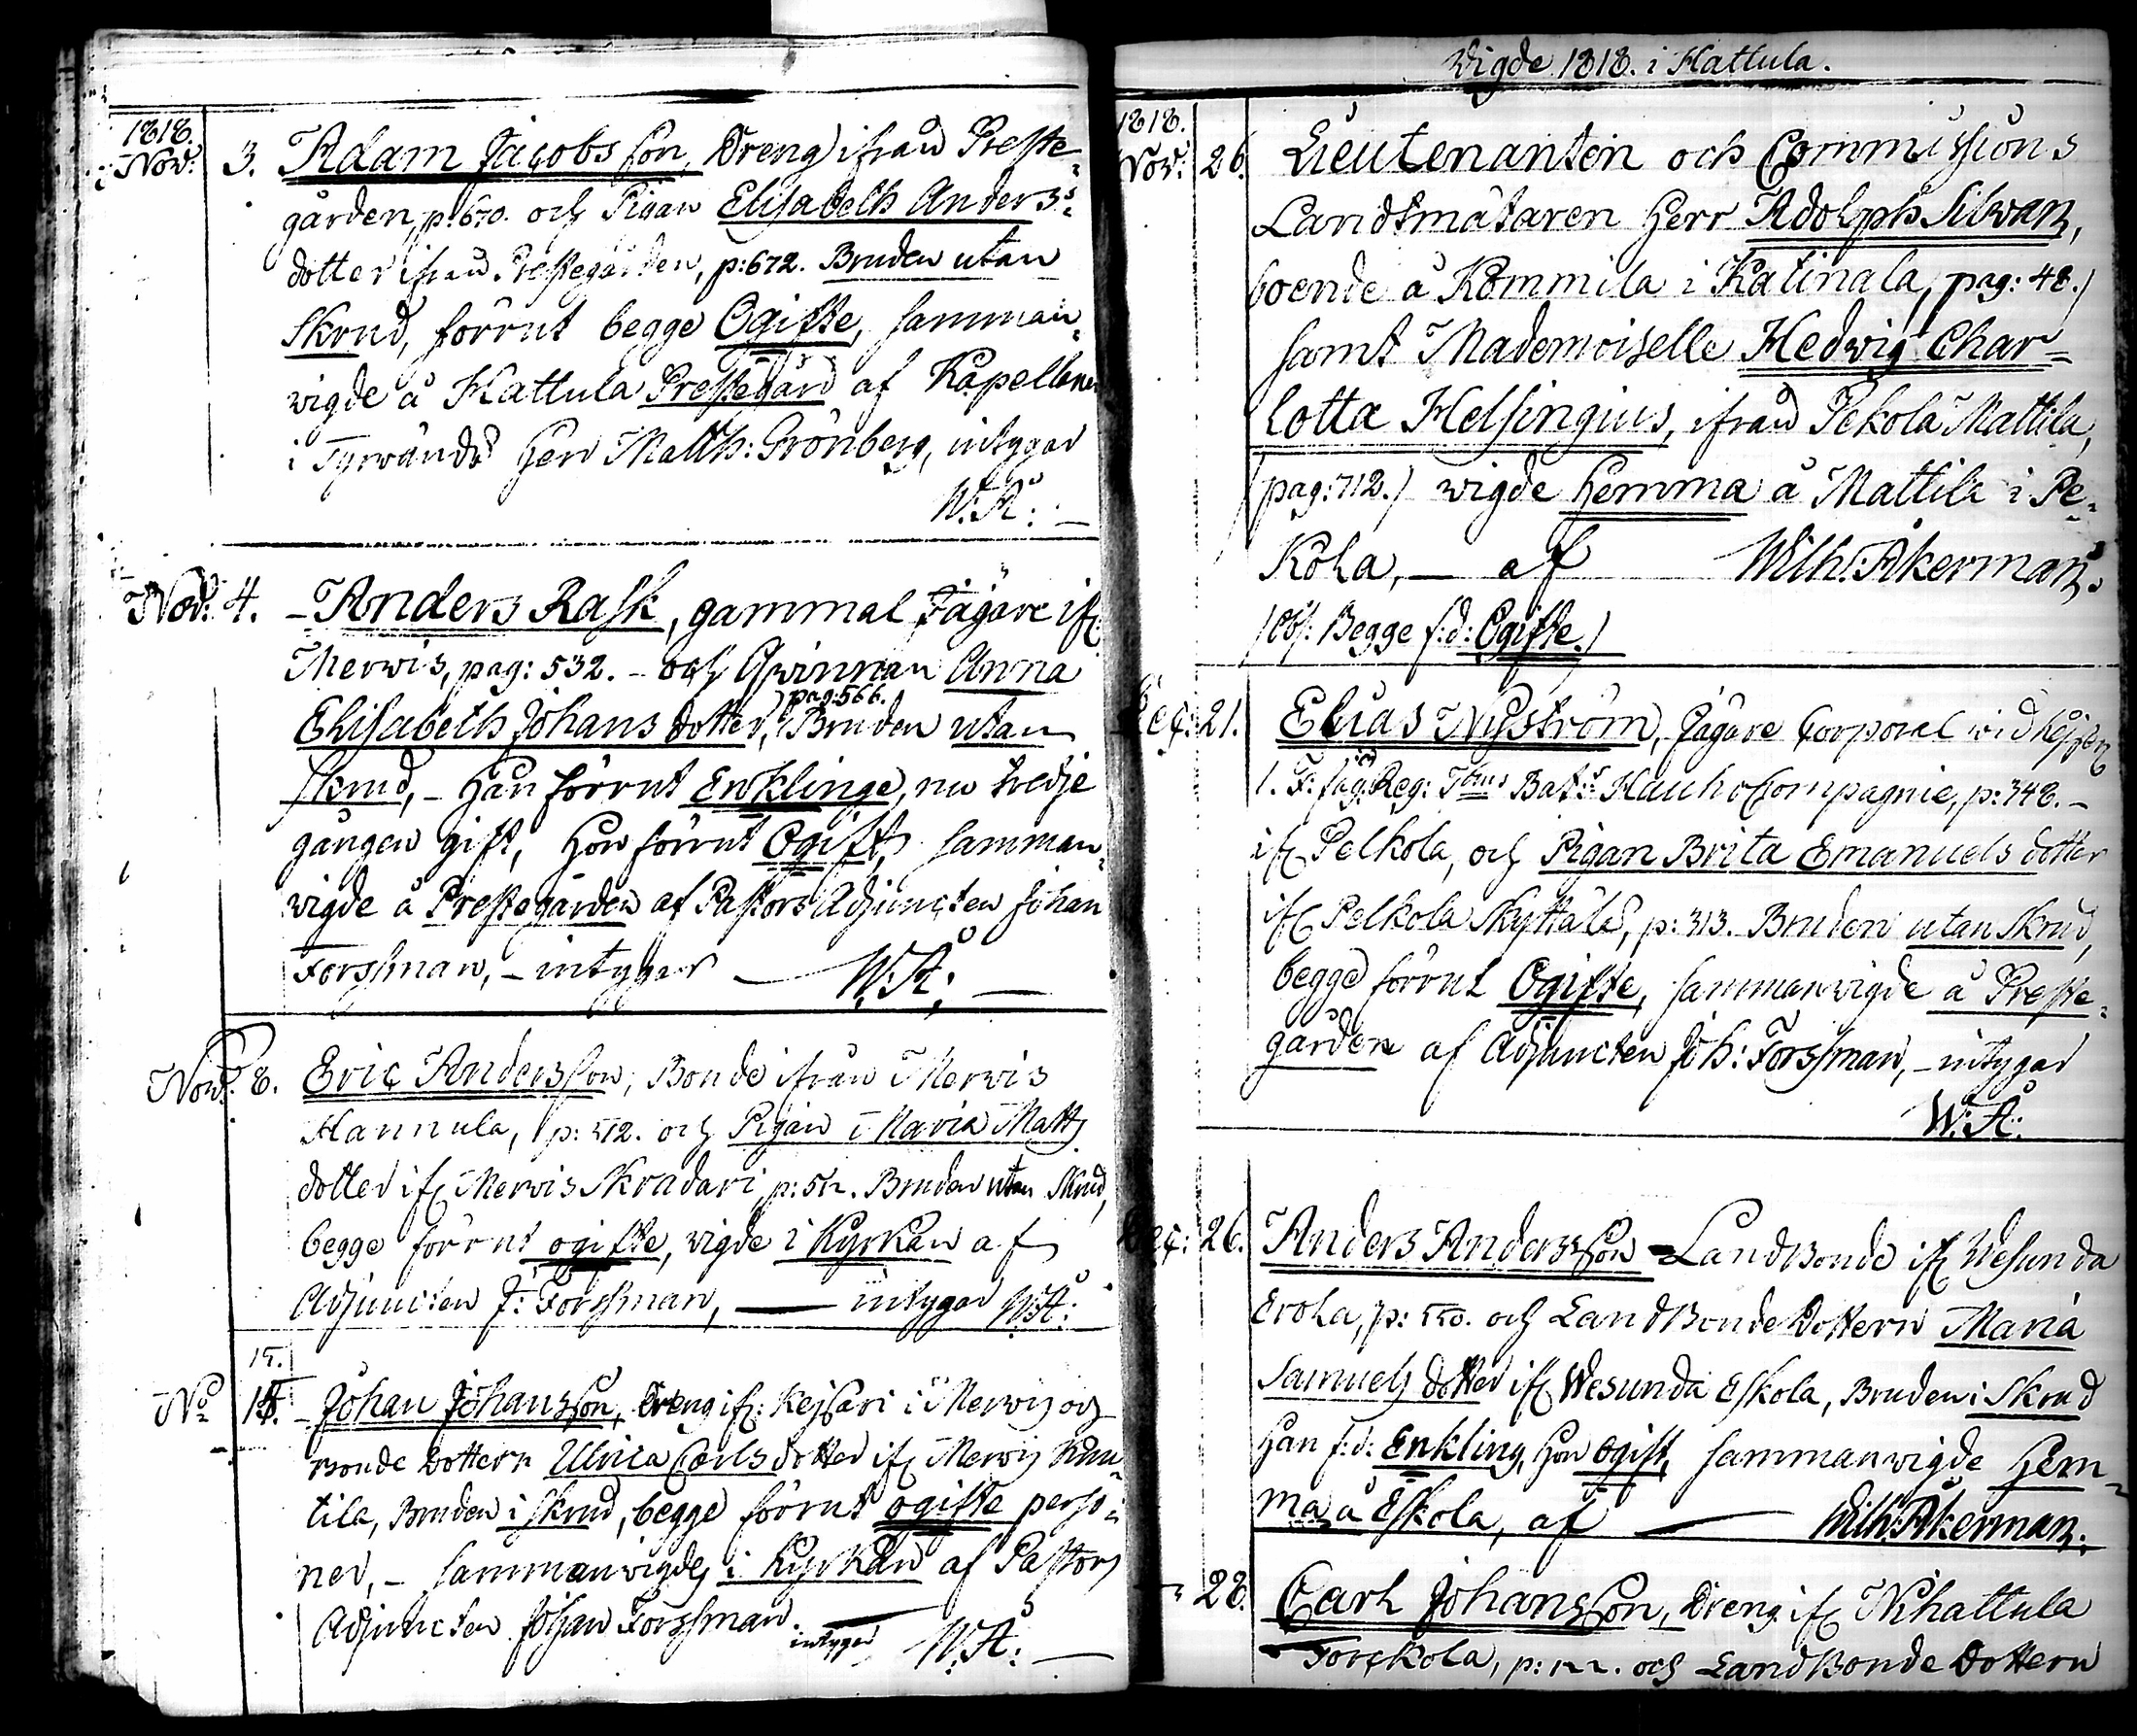 1818.
Nov: 3. Adam Jacobs son, Dreng ifrån Preste-
gården, p: 670. och Pigan Elisabeth Anders-
dotter ifrån Prestegården, p: 672. Bruden utan
Skrud, förrut begge Ogifte, samman-
wigde å Hattula Prestegård af Kapellanen
i Tyrwändö Herr Matth: Grönberg, intygar
W.Å: —
Nov: 4. – Anders Rask, gammal Jägare ifr:
Merwis, pag: 532. – och Qwinnan Anna
Elisabeth Johans dotter, pag: 566. Bruden utan
skrud, – Han förrut Enklinge, nu tredje
gången gift, Hon förrut Ogift, samman-
wigde å Prestegården af Pastors Adjuncten Johan
Forssman, – intygar — W.Å: —
Nov: 8. Eric Andersson, Bonde ifrån Merwis
Hannula, p: 512. och Pigan Maria Matts
dotter ifr Merwis Skradari, p: 512. Bruden utan Skrud,
begge förrut ogifte, wigde i Kyrkan af
Adjuncten J: Forssman, — intygar W.Å:
15.
No 15. – Johan Johansson, Dreng ifr: Kejsari i Merwis och
Bonde Dottern Ulrica Carls dotter ifr Merwis
tila, Bruden i skrud, begge förrut ogifte perso-
ner, – sammanwigde i Kyrkan af Pastors
Adjuncten Johan Forssman. — intygar W.Å: —
Wigde 1818. i Hattula.
1818.
Nov: 26. Lieutenanten och Commissions
Landtmätaren Herr Adolph Silwan,
boende å Kömmilä i Katinala, pag: 48.)
samt Mademoiselle Hedwig Char-
lotta Helsingius, ifrån Pekola Mattila,
(pag: 712.) wigde Hemma å Mattila i Pe-
kola, — af — Wilh: Åkerman.
(obs: Begge f: d: Ogifte.)
Dec: 21. Elias Nyström, Jägare Corporal wid
1. F: Jäg: Reg: Bat:s Hauho Compagnie, p: 348. –
ifr Pelkola, och Pigan Brita Emanuels dotter
ifr Pelkola Skyttälä, p: 313. Bruden utan Skrud,
begge förrut Ogifte, sammanwigde å Preste-
gården af Adjuncten Joh: Forssman, – intygar
W:Å:
Dec: 26. Anders Andersson Landbonde ifr Wesunda
Erola, p: 550. och Landbonde Dottern Maria
Samuels dotter ifr Wesunda Eskola, Bruden i Skrud
Han f: d: Enkling, Hon ogift, sammanwigde Hem-
ma å Eskola, af — Wilh: Åkerman.
– 28. Carl Johansson, Dreng ifr Nihattula
Torckola, p: 122. och Landbonde Dottern